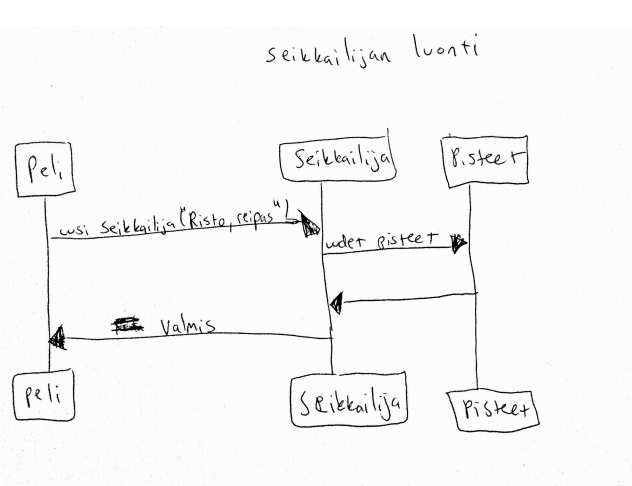 seikkailijan luonti
Peli
Seikkailija
Pisteet
uusi seikkailija("Risto, reipas")
uudet pisteet
Valmis
peli
Seikkailija
Pisteet